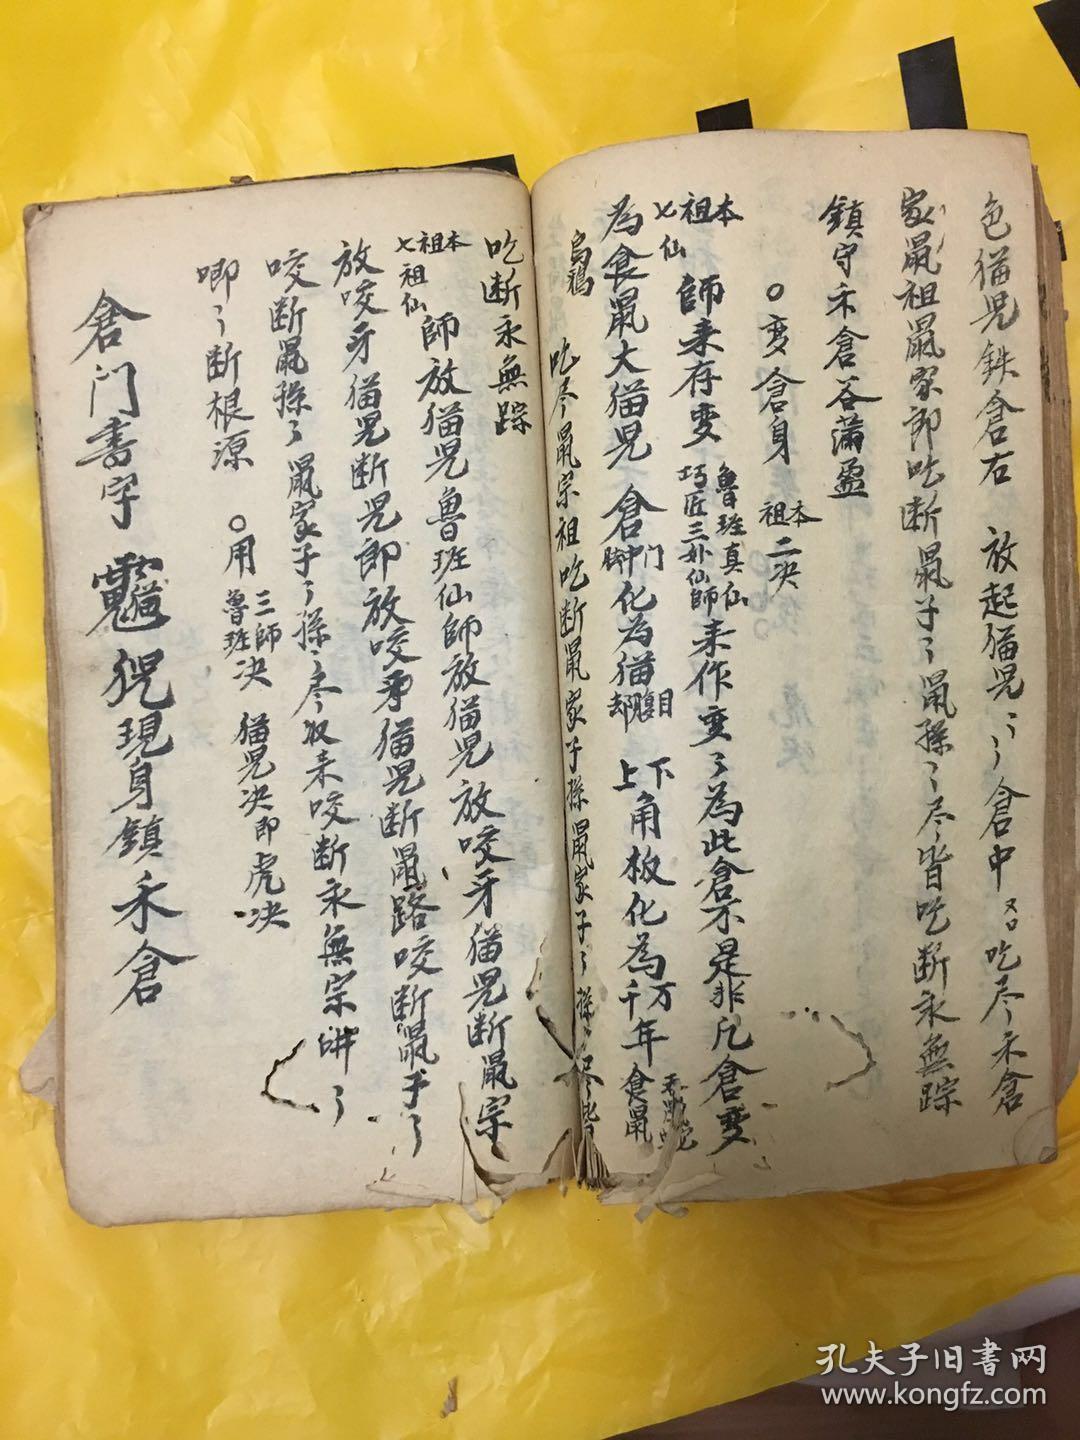 色猫児鉄倉右 放起猫児〻〻倉中 吃尽禾倉
家鼠祖鼠家郎吃断鼠子〻鼠孫〻尽皆吃断永無踪
鎮守禾倉谷满盈
○变倉身 本祖二决
本祖七仙師来存变 魯班真仙巧匠三外仙師来作变〻為此倉不是非凡倉变
為食鼠大猫児 倉門中脚化為猫目腹却 下上角板化為万千年食鼠
烏鴉 吃尽鼠宗祖吃断鼠家子孫鼠家子〻孫〻尽皆
吃断永無踪
本祖祖七仙師放猫児魯班仙師放猫児放咬牙猫児断鼠宗
放咬牙猫児断児郎放咬牙猫児断鼠路咬断鼠子〻
咬断鼠孫〻鼠家子〻孫〻尽收来咬断永無宗
唧〻断根源 ○用三師魯班决 猫児决即虎决
倉门書字 現身鎮禾倉
孔夫子旧書网
www.kongfz.com